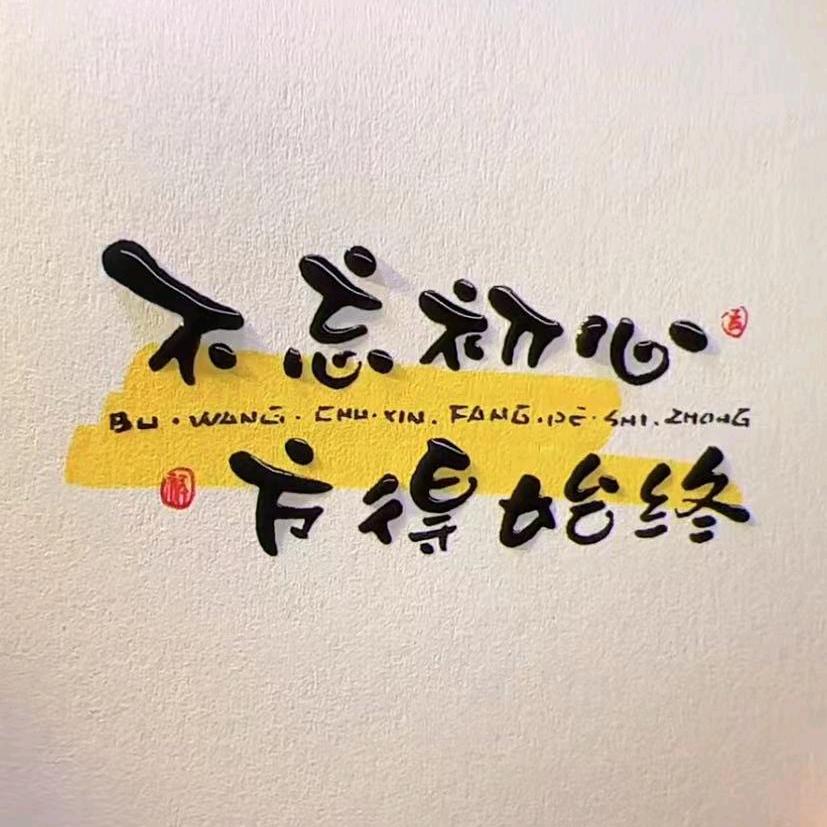 不忘初心
BU·WANG·CHU·XIN.FANG.DE·SHI.ZHONG
方得始终